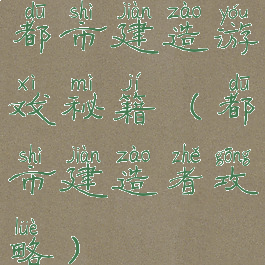 dū shì jiàn zào yóu
都市建造游
xì mì jí dū
戏秘籍（都
shì jiàn zào zhě gōng
市建造者攻
lüè
略）